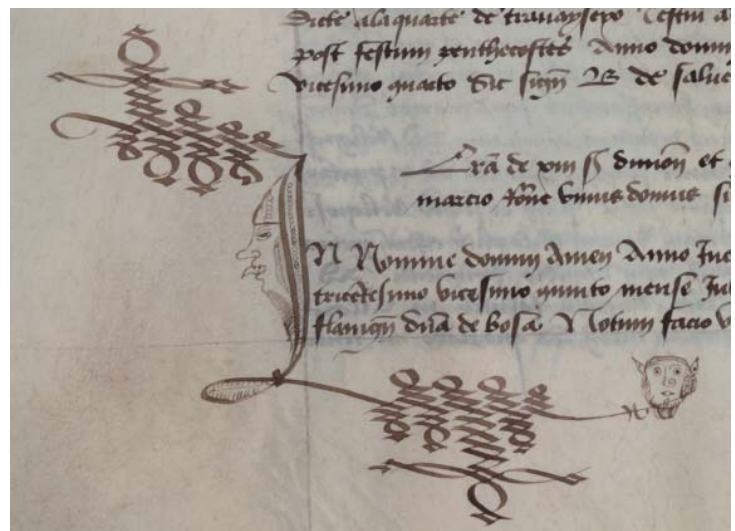 Dicte ala quarte de travayseyo Testm a
post festum penthecostes Anno domin
vicesimo quarto Sic sign̄ B de saluc
Lrā de xiii s dimōn et
marcio Rōne unius domus si
IN Nomine domini Amen Anno Inc
tricetesimo vicesimo quinto mense Ju
dnā de bosā Notum facio v